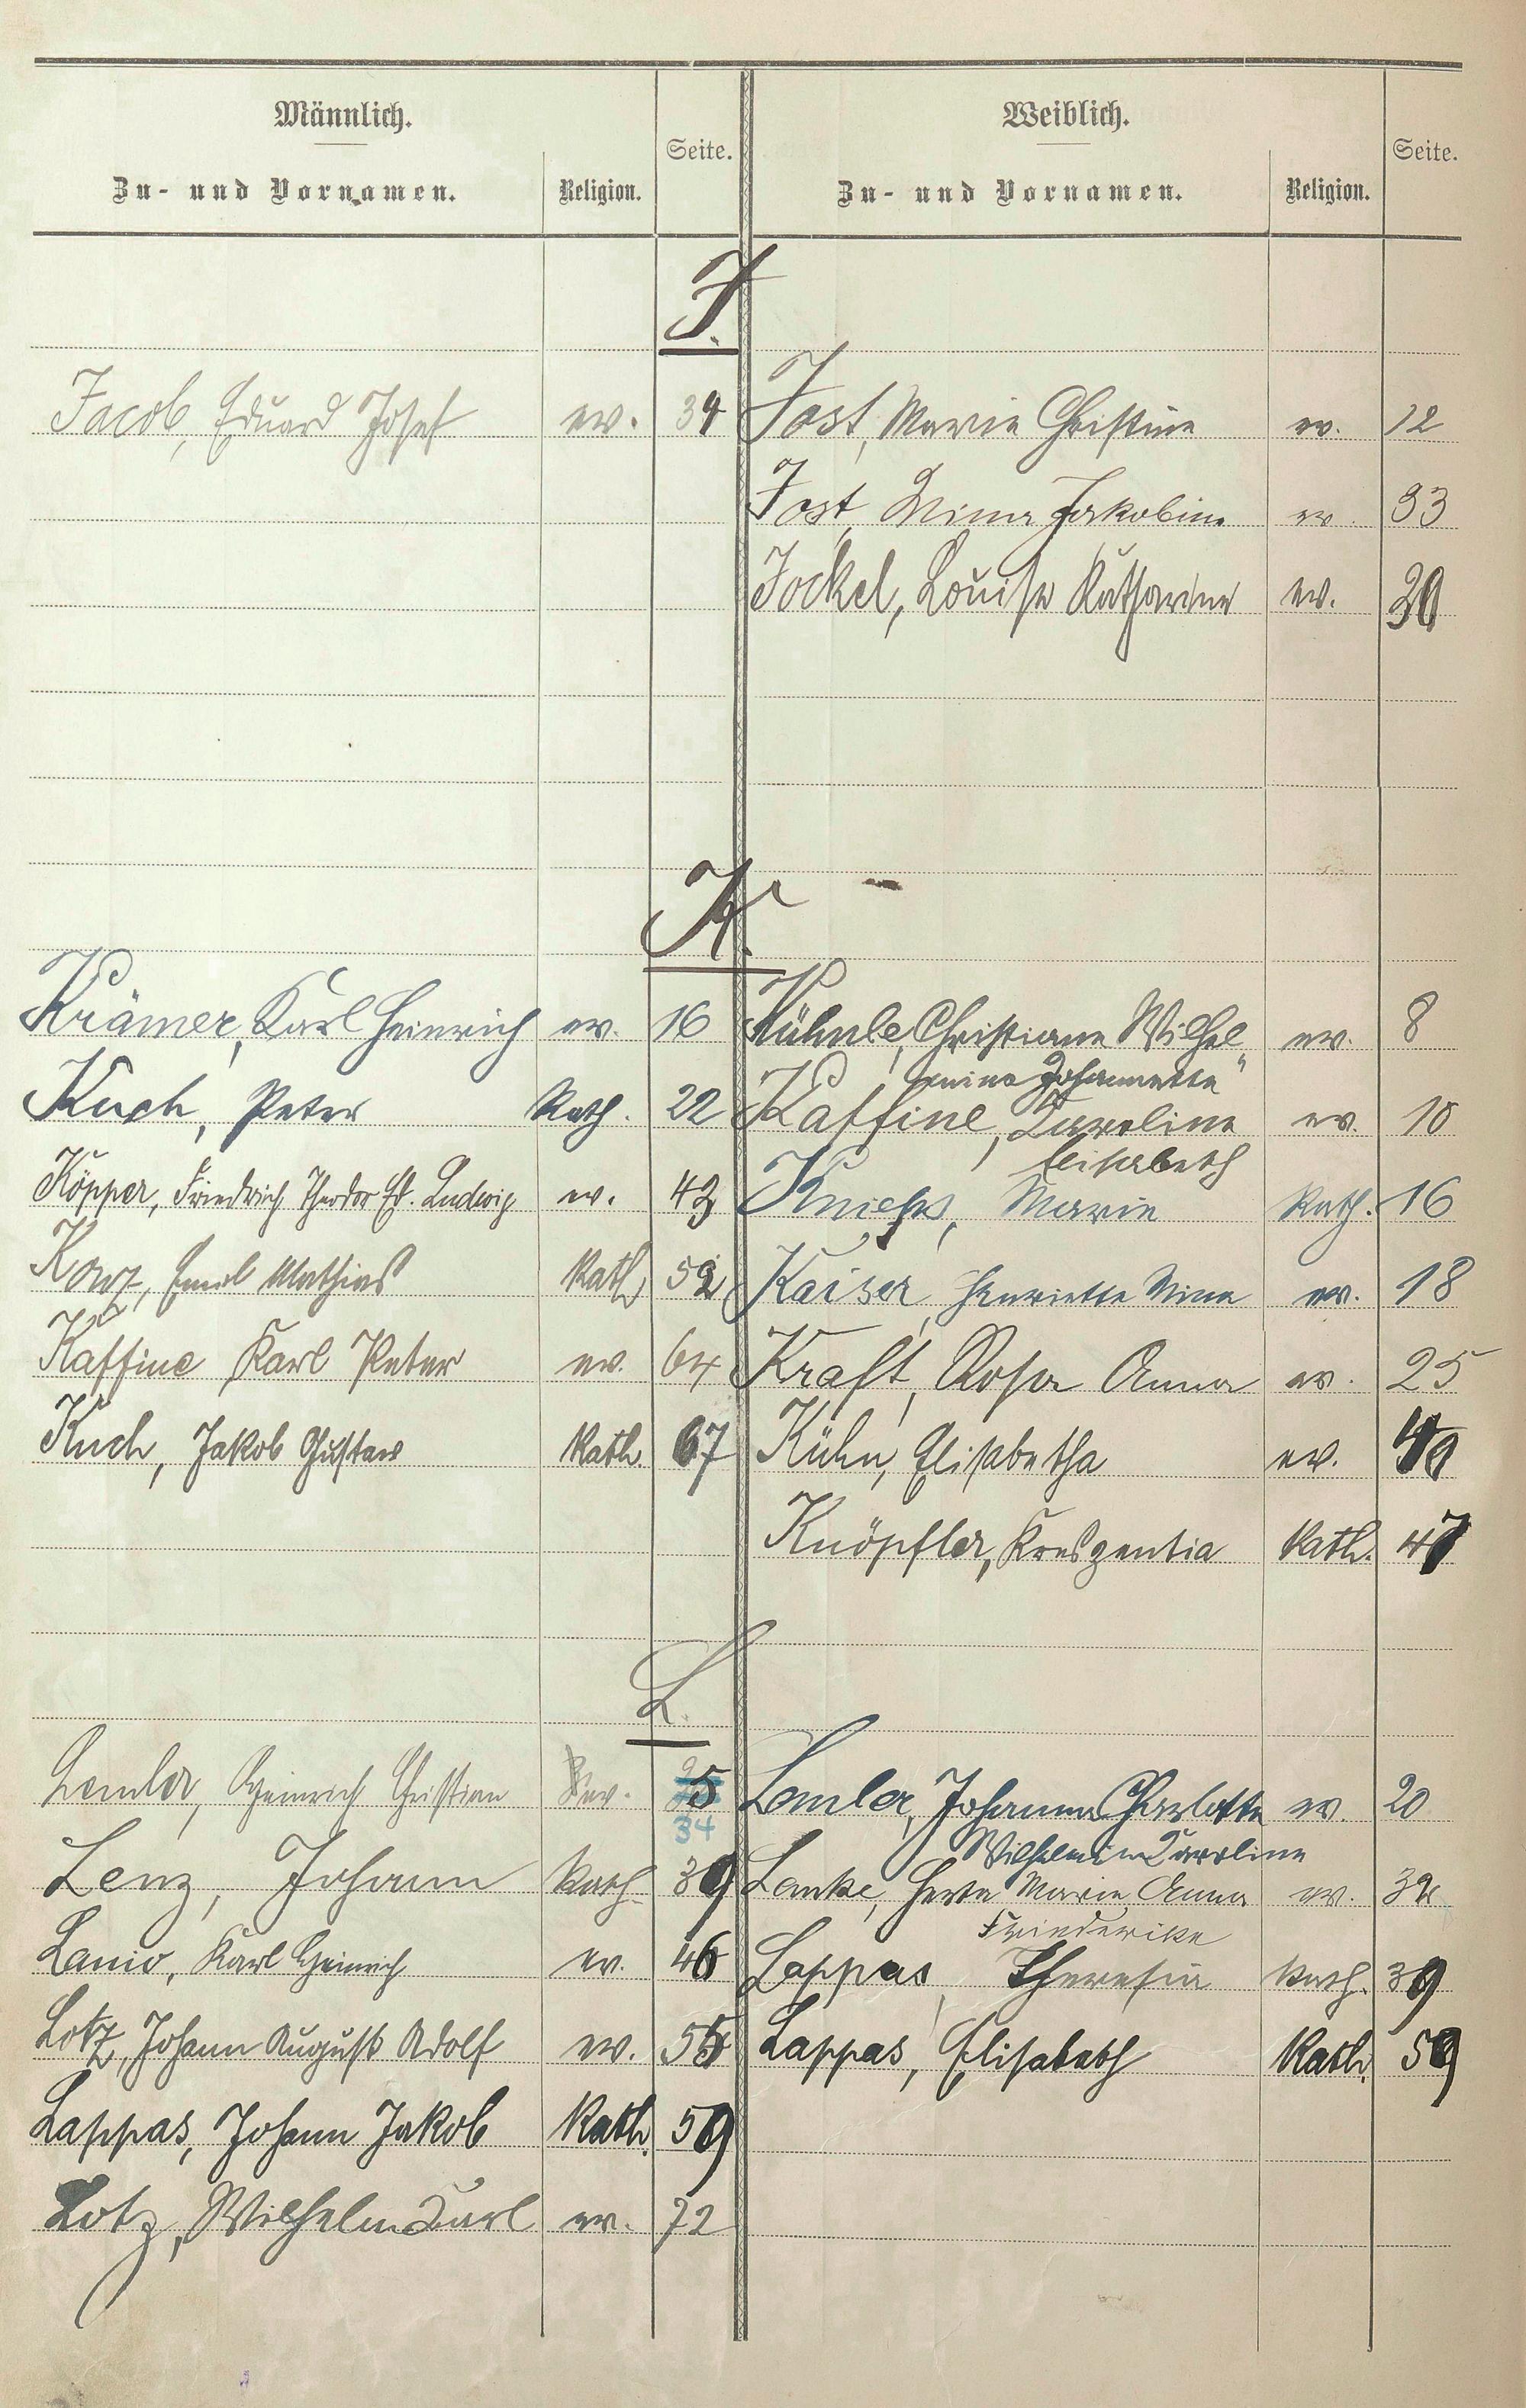 Männlich.
Zu- und Vornamen.
Religion.
Seite.
Weiblich.
Zu- und Vornamen.
Religion.
Seite.
J.
Jacob, Eduard Josef ev. 34
Jost, Marie Christine ev. 12
Jost, Mina Jakobine ev. 33
Jockel, Louise Katharine ev. 30
K.
Krämer, Karl Heinrich ev. 16
Kühnle, Christiane Wilhel„ ev. 8
mine Johannette"
Kuch, Peter Kath. 22
Kaffine, Karoline ev. 10
Elisabeth
Köpper, Friedrich Theodor Ed. Ludwig ev. 43
Knieps, Marie Kath. 16
Emil Mathias Kath 52
Kaiser, Henriette Mina ev. 18
Kaffine Karl Peter ev. 64
Kraft, Rosa Anna ev. 25
Kuch, Jakob Gustav Kath. 67
Kühn, Elisabetha ev. 40
Knöpfler, Kreszentia Kath. 47
L.
Lemler, Heinrich Christian ev. 34
Lemler, Johanna Charlotte ev. 20
Wilhelmine Karoline
Lenz, Johann Kath. 39
Lenke, Herta Marie Anna ev. 32
Friederike
Karl Heinrich ev. 46
Lappas, Theresia Kath. 39
Lotz, Johann August Adolf ev. 55
Lappas, Elisabeth Kath. 59
Lappas, Johann Jakob Kath. 59
Lotz, Wilhelm Karl ev. 72